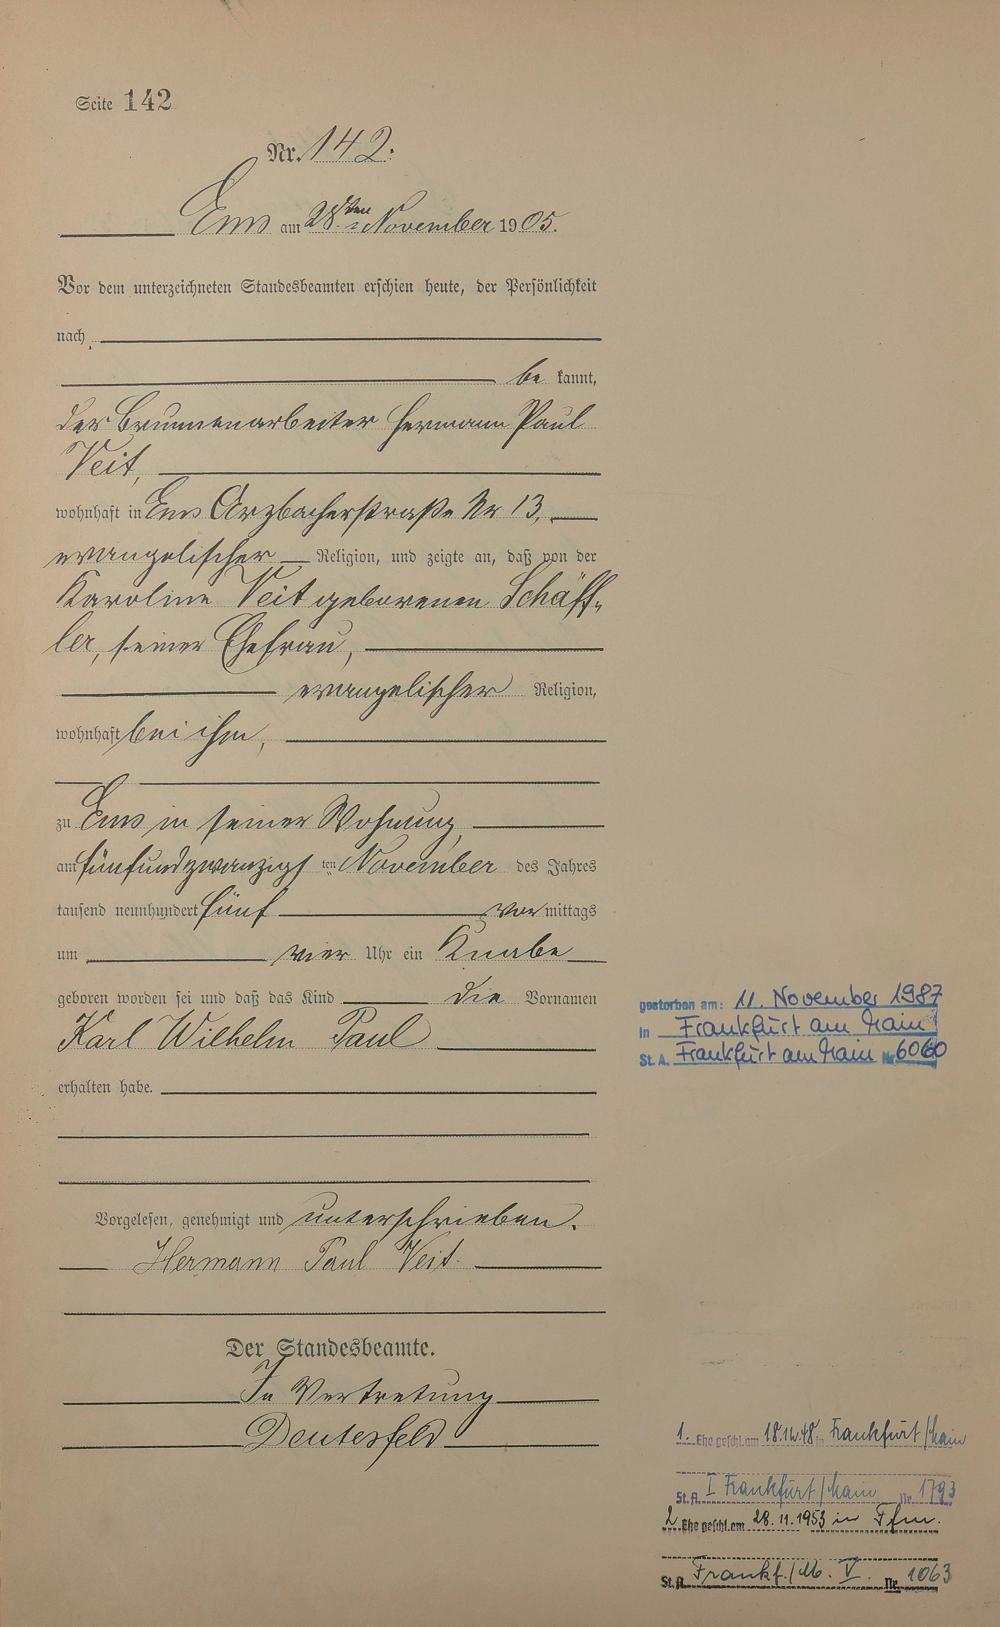 Seite 142
Nr. 142.
Ems am 28ten November 1905.
Vor dem unterzeichneten Standesbeamten erschien heute, der Persönlichkeit
nach
be kannt,
der Brunnenarbeiter Hermann Paul
Veit,
wohnhaft in Ems Arzbacherstraße Nr 13,
evangelischer Religion, und zeigte an, daß von der
Karoline Veit geborenen Schäff-
ler, seiner Ehefrau,
evangelischer Religion,
wohnhaft bei ihm,
zu Ems in seiner Wohnung,
am fünfundzwanzigsten November des Jahres
tausend neunhundert fünf vor mittags
um vier Uhr ein Knabe
geboren worden sei und daß das Kind die Vornamen
Karl Wilhelm Paul
erhalten habe.
Vorgelesen, genehmigt und unterschrieben.
Hermann Paul Veit.
Der Standesbeamte.
In Vertretung
Deutesfeld
gestorben am: 11. November 1987
in Frankfurt am Main
St. A. Frankfurt am Main Nr. 6060
1. Ehe geschl. am 18.12.48 in Frankfurt/Main
St. A. I Frankfurt/Main Nr. 1793
2. Ehe geschl. am 28.11.1953 in Ffm.
St. A. Frankf./M. V. Nr. 1063